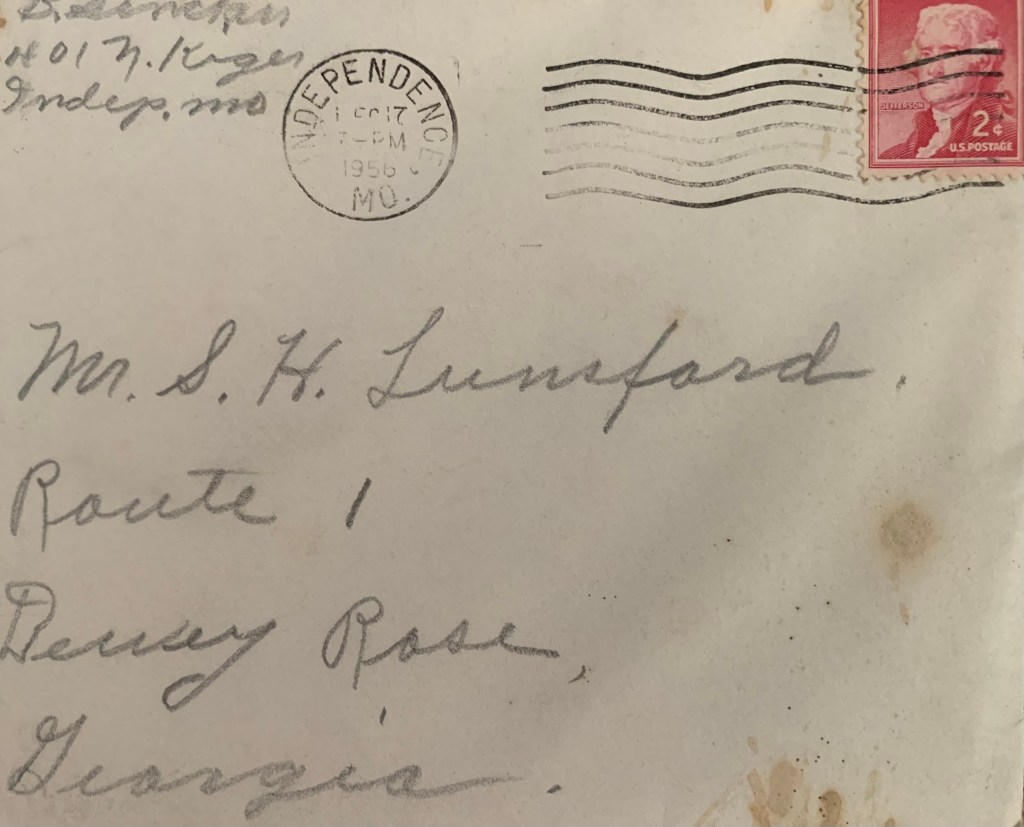 401 N. Kiger
Indep. mo
INDEPENDENCE
17
PM
1956
MO.
JEFFERSON
2¢
U.S. POSTAGE
Mr. S. H. Lunsford.
Route 1
Dewey Rose,
Georgia.